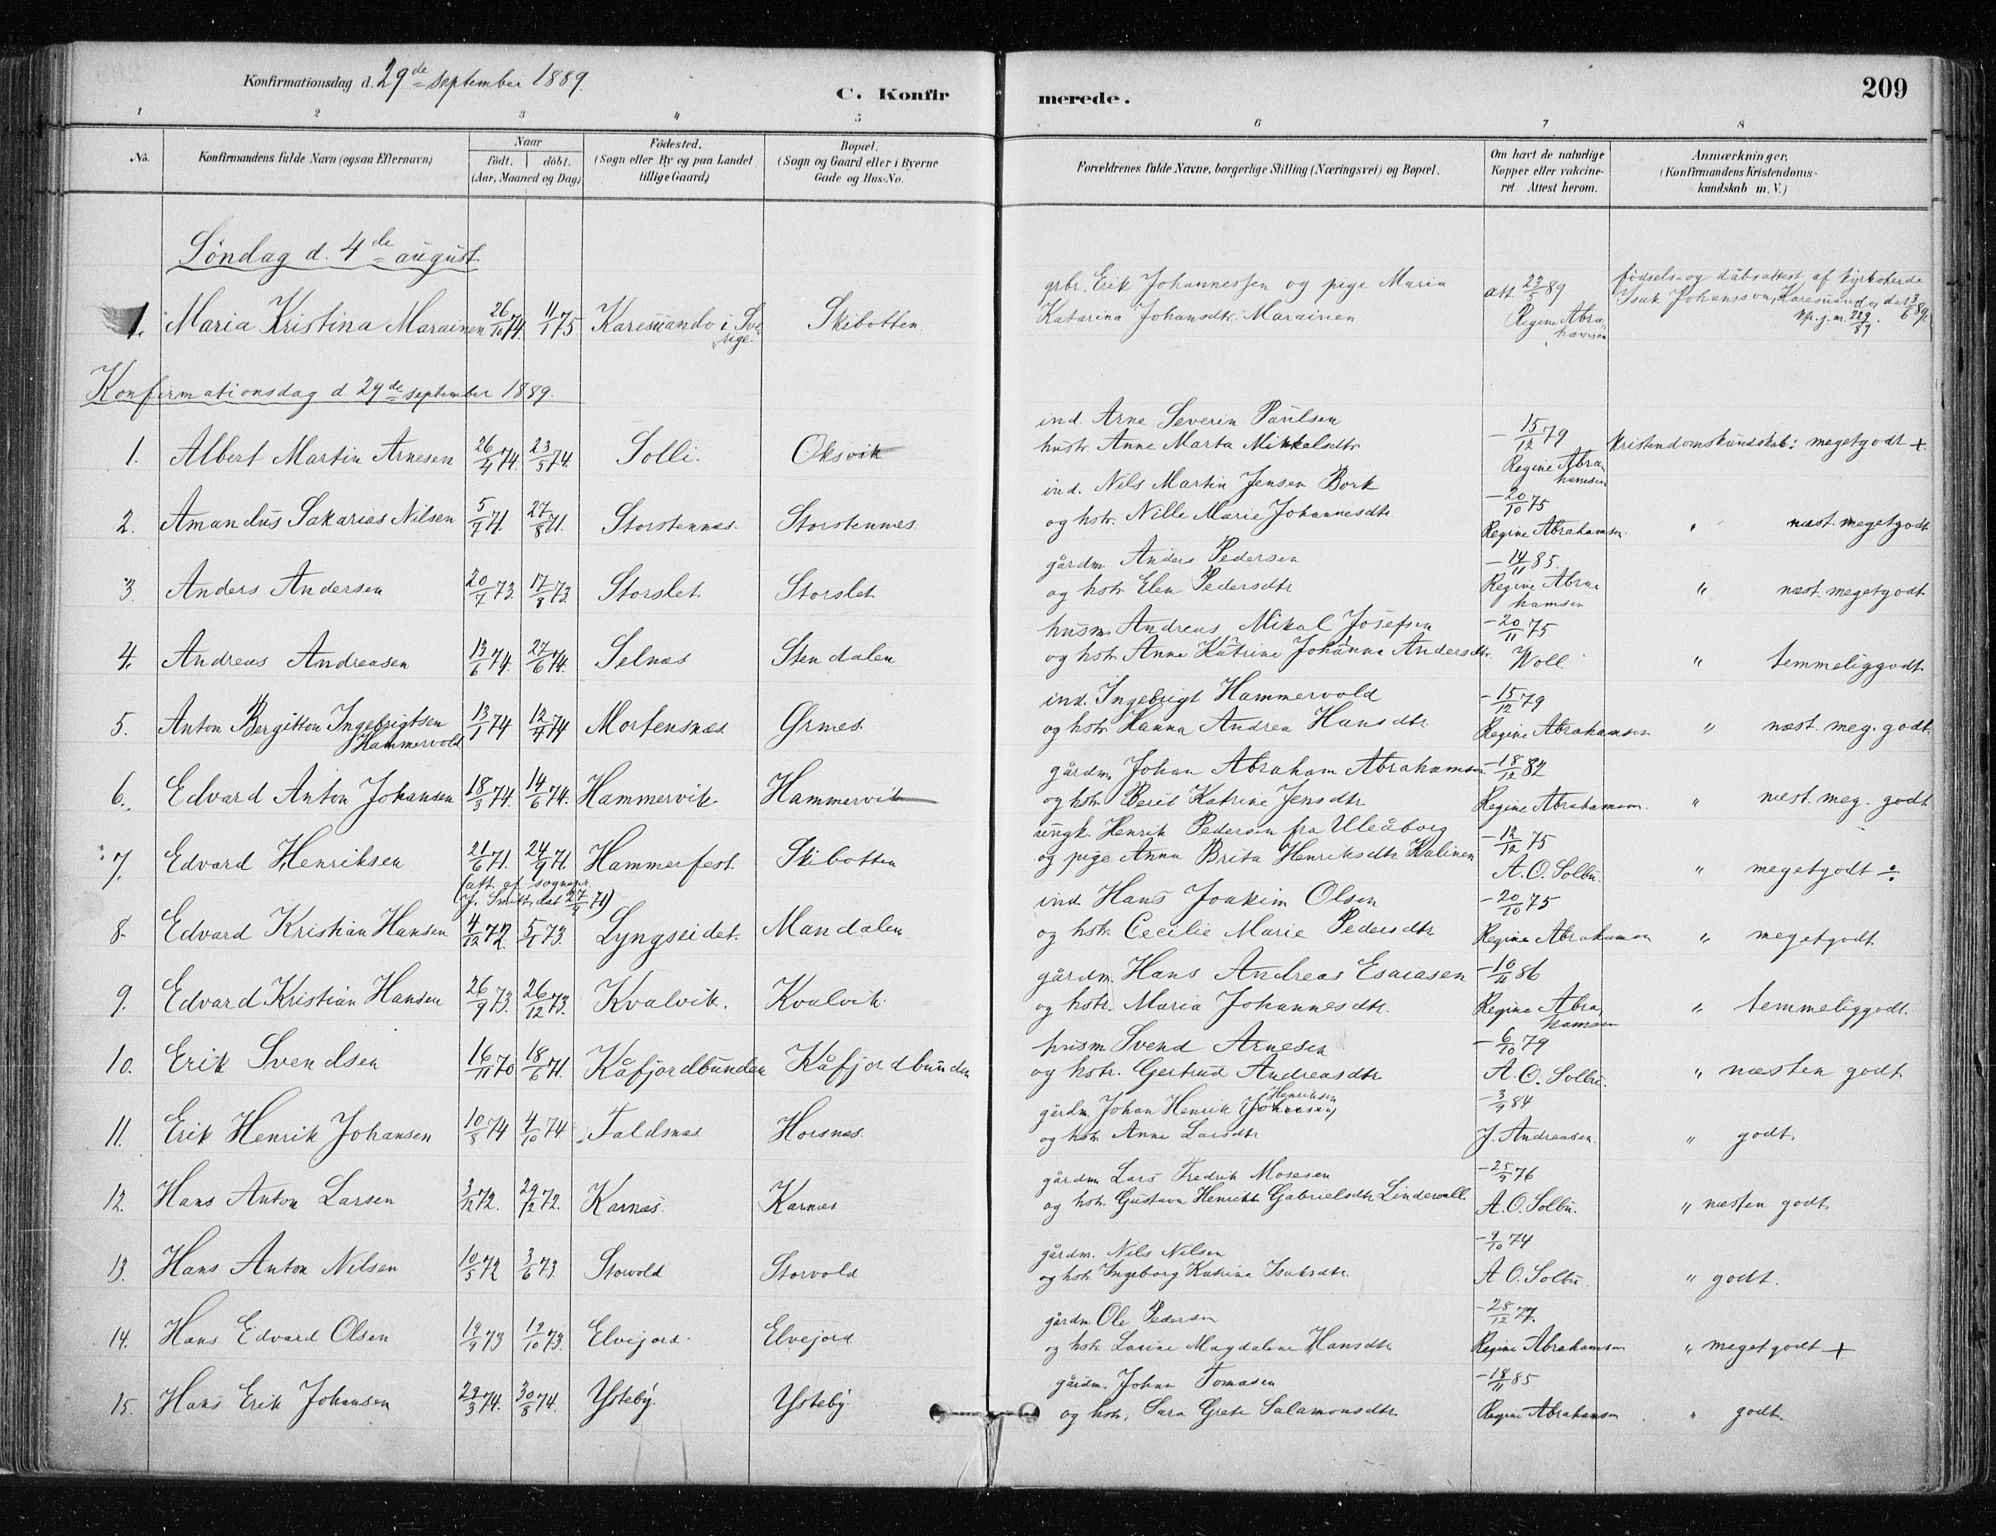 Konfirmationsdag d. 29de september 1889.
C. Konfirmerede.
209
1 2 3 4 5 6 7 8
No.
Konfirmandens fulde Navn (ogsaa Efternavn)
Naar
födt. döbt.
(Aar, Maaned og Dag)
Födested.
(Sogn eller By og paa Landet
tillige Gaard)
Bopæl.
(Sogn og Gaard eller i Byerne
Gade og Hus-No.
Forældrenes fulde Navne, borgerlige Stilling (Næringsvei) og Bopæl.
Om havt de naturlige
Kopper eller vakcine-
ret Attest herom.
Anmærkninger.
(Konfirmandens Kristendoms-
kundskab m. V.)
Söndag d. 4de august
1. Maria Kristina Marainen 26/10 74. 11/1 75 Karesuando i Sverige. Skibotten
grbr. Erik Johannessen og pige Maria
Katarina Johansdtr. Marainen
att. 23/5 89
Regine Abrahamsen
fødsels- og dåbsattest af kyrkoherde
Isak Johansson, Karesuando, dat 3/6 89.
Konfirmationsdag d 29de september 1889.
1. Albert Martin Arnesen 26/4 74. 23/5 74. Solli. Oksvik
ind. Arne Severin Paulsen
hustr. Anne Marta Mikkelsdtr
- 15/12 79
Regine Abrahamsen
Kristendomskundskab: megetgodt +
2. Amandus Sakarias Nilsen 5/7 71 27/8 71. Storstennes. Storstennes
ind. Nils Martin Jensen Bork
og hstr. Nille Marie Johannesdtr
- 20/10 75
Regine Abrahamsen.
" næst. megetgodt
3. Anders Andersen 20/7 73. 17/8 73. Storslet. Storslet
gårdm Anders Pedersen
og hstr Elen Pedersdtr
- 14/11 85.
Regine Abrahamsen
" næst. megetgodt
4. Andreas Andreasen 13/6 74. 27/6 74. Selnæs Stendalen
husm. Andreas Mikal Josefsen
og hstr. Anne Katrine Johanna Andersdtr.
- 20/11 75
Woll
" temmeliggodt
5. Anton Bergitton Ingebrigtsen Hammervold 13/1 74 12/4 74 Mortensnæs Ørnes
ind. Ingebrigt Hammervold
og hstr. Hanna Andrea Hansdtr
- 15/12 79
Regine Abrahamsen
" næst. meg. godt
6. Edvard Anton Johansen 18/5 74. 14/6 74. Hammervik Hammervik
gårdm. Johan Abraham Abrahamsen
og hstr Berit Katrine Jensdtr
- 18/12 82
Regine Abrahamsen.
" næst. meg. godt
7. Edvard Henriksen 21/6 71. 24/9 71. Hammerfest. Skibotten
(att. af sognepr.
ungk. Henrik Pedersen fra Uleåborg
og pige Anna Brita Henriksdtr Kalinen
- 12/12 75
A. O. Solbu.
" megetgodt ÷
8. Edvard Kristian Hansen 4/12 72. 5/1 73. Lyngseidet. Mandalen
ind. Hans Joakim Olsen
og hstr Cecilie Marie Pedersdtr
- 20/10 75
Regine Abrahamsen
" megetgodt
9. Edvard Kristian Hansen 26/9 73. 26/12 73. Kvalvik. Kvalvik
gårdm. Hans Andreas Esaiasen
og hstr. Maria Johannesdtr.
- 10/11 86
Regine Abrahamsen
" temmeliggodt.
10. Erik Svendsen 16/11 70 18/6 71. Kåfjordbunden Kåfjordbunden
husm Svend Arnesen
og hstr. Gertrud Andreasdtr
- 6/10 79
A. O. Solbu.
" næsten godt
11. Erik Henrik Johansen 10/8 74 4/10 74. Faldsnæs. Horsnæs
gårdm. Johan Henrik (Johansen) Henriksen
og hstr Anne Larsdtr
- 3/9 84
J. Andreasen.
" godt.
12. Hans Anton Larsen 3/12 72. 29/12 72. Karnæs Karnæs
gårdm Lars Fredrik Mosesen
og hstr Gustava Henrikke Gabrielsdtr Lindewall.
- 25/9 76
A. O. Solbu.
" næsten godt
13. Hans Anton Nilsen 10/5 72 3/6 73. Storvold Storvold
gårdm. Nils Nilsen
og hstr Ingeborg Katrine Isaksdtr.
- 9/10 74
A. O. Solbu.
" godt.
14. Hans Edvard Olsen 19/9 73 19/10 73. Elvejord. Elvejord
gårdm. Ole Pedersen
og hstr Laurine Magdalene Hansdtr
- 28/12 77.
Regine Abrahamsen
" megetgodt +
15. Hans Erik Johansen 29/3 74. 30/8 74. Ysteby. Ysteby
gårdm. Johan Tomasen
og hstr. Sara Grete Salamonsdtr
- 18/11 85
Regine Abrahamsen
" godt